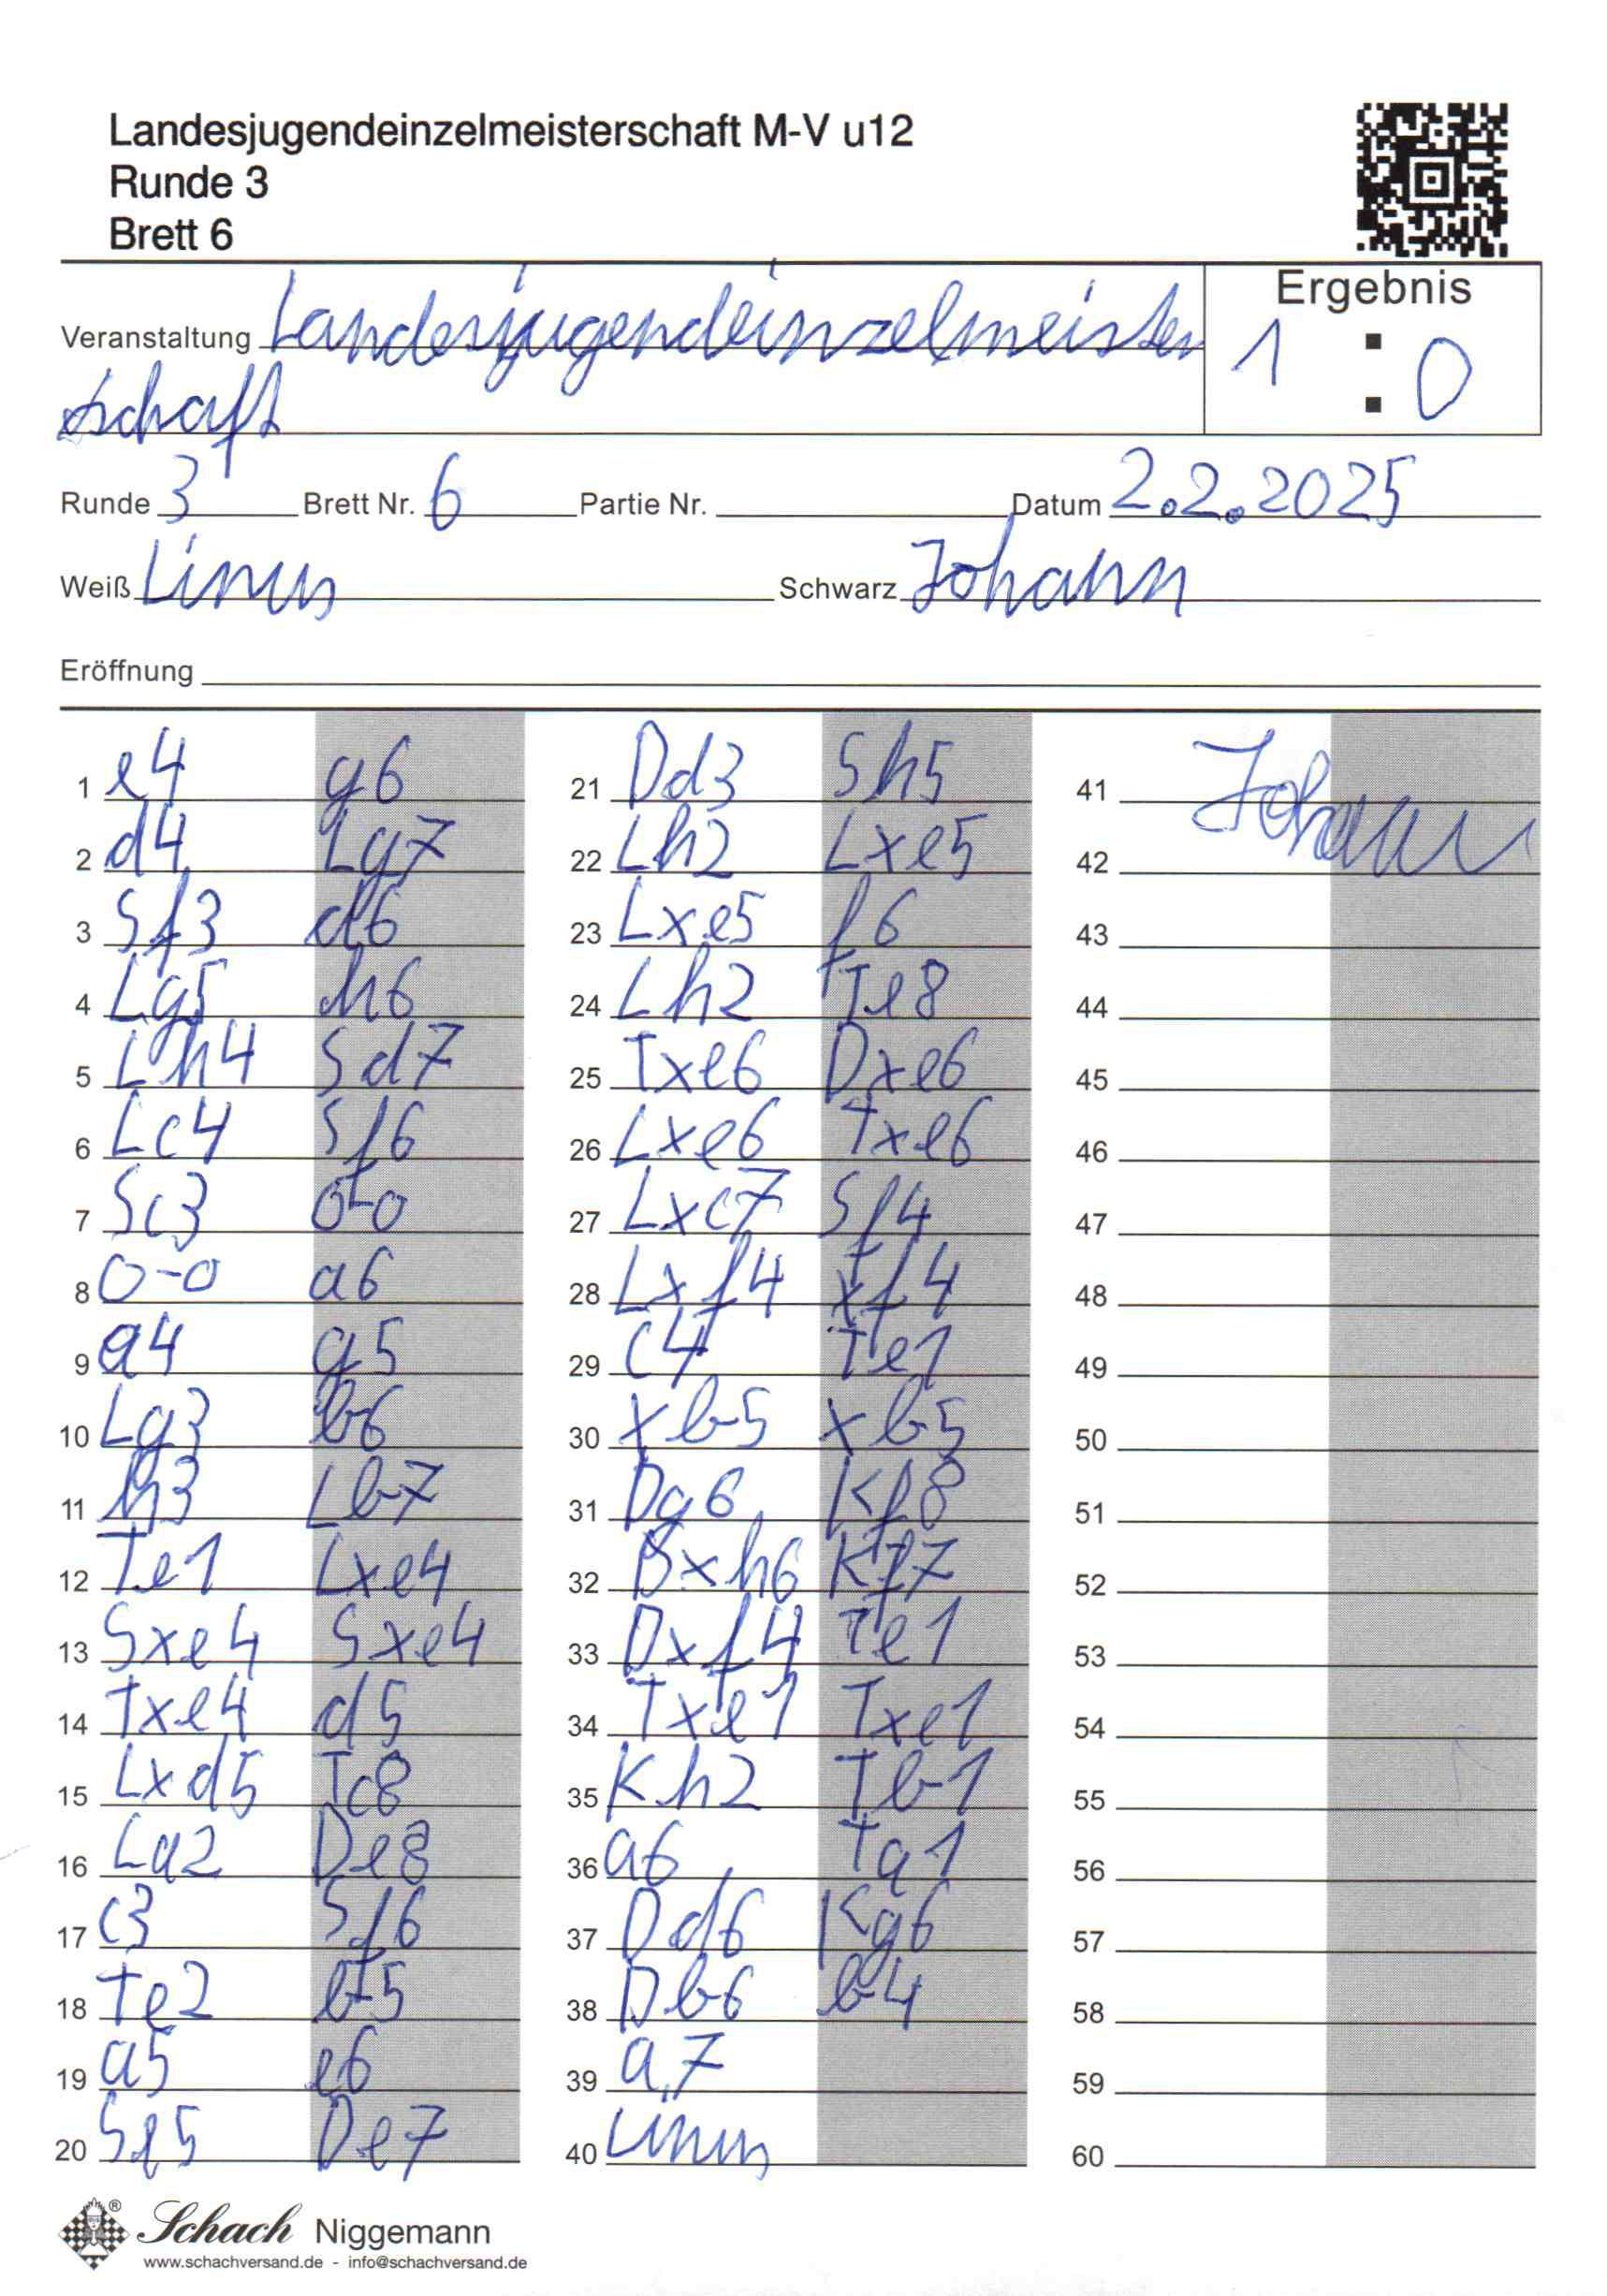 Landesjugendeinzelmeisterschaft M-V u12
Runde 3
Brett 6
Ergebnis
Veranstaltung Landesjugendeinzelmeister
schaft
1 : 0
Runde 3 Brett Nr. 6 Partie Nr. Datum 2.2.2025
Weiß Linus Schwarz Johann
Eröffnung
1 e4 g6
2 d4 Lg7
3 Sf3 d6
4 Lg5 h6
5 Lh4 Sd7
6 Lc4 Sf6
7 Sc3 0-0
8 0-0 a6
9 a4 g5
10 Lg3 b6
11 h3 Lb7
12 Te1 Lxe4
13 Sxe4 Sxe4
14 Txe4 d5
15 Lxd5 Tc8
16 La2 De8
17 c3 Sf6
18 Te2 b5
19 a5 e6
20 Se5 De7
21 Dd3 Sh5
22 Lh2 Lxe5
23 Lxe5 f6
24 Lh2 Te8
25 Txe6 Dxe6
26 Lxe6 Txe6
27 Lxc7 Sf4
28 Lxf4 xf4
29 c4 Te1
30 xb5 xb5
31 Dg6 Kf8
32 Dxh6 Kf7
33 Dxf4 Te1
34 Txe1 Txe1
35 Kh2 Tb1
36 a6 Ta1
37 Dd6 Kg6
38 Db6 b4
39 a7
40 Linus
41 Johann
42
43
44
45
46
47
48
49
50
51
52
53
54
55
56
57
58
59
60
® Schach Niggemann
www.schachversand.de - info@schachversand.de